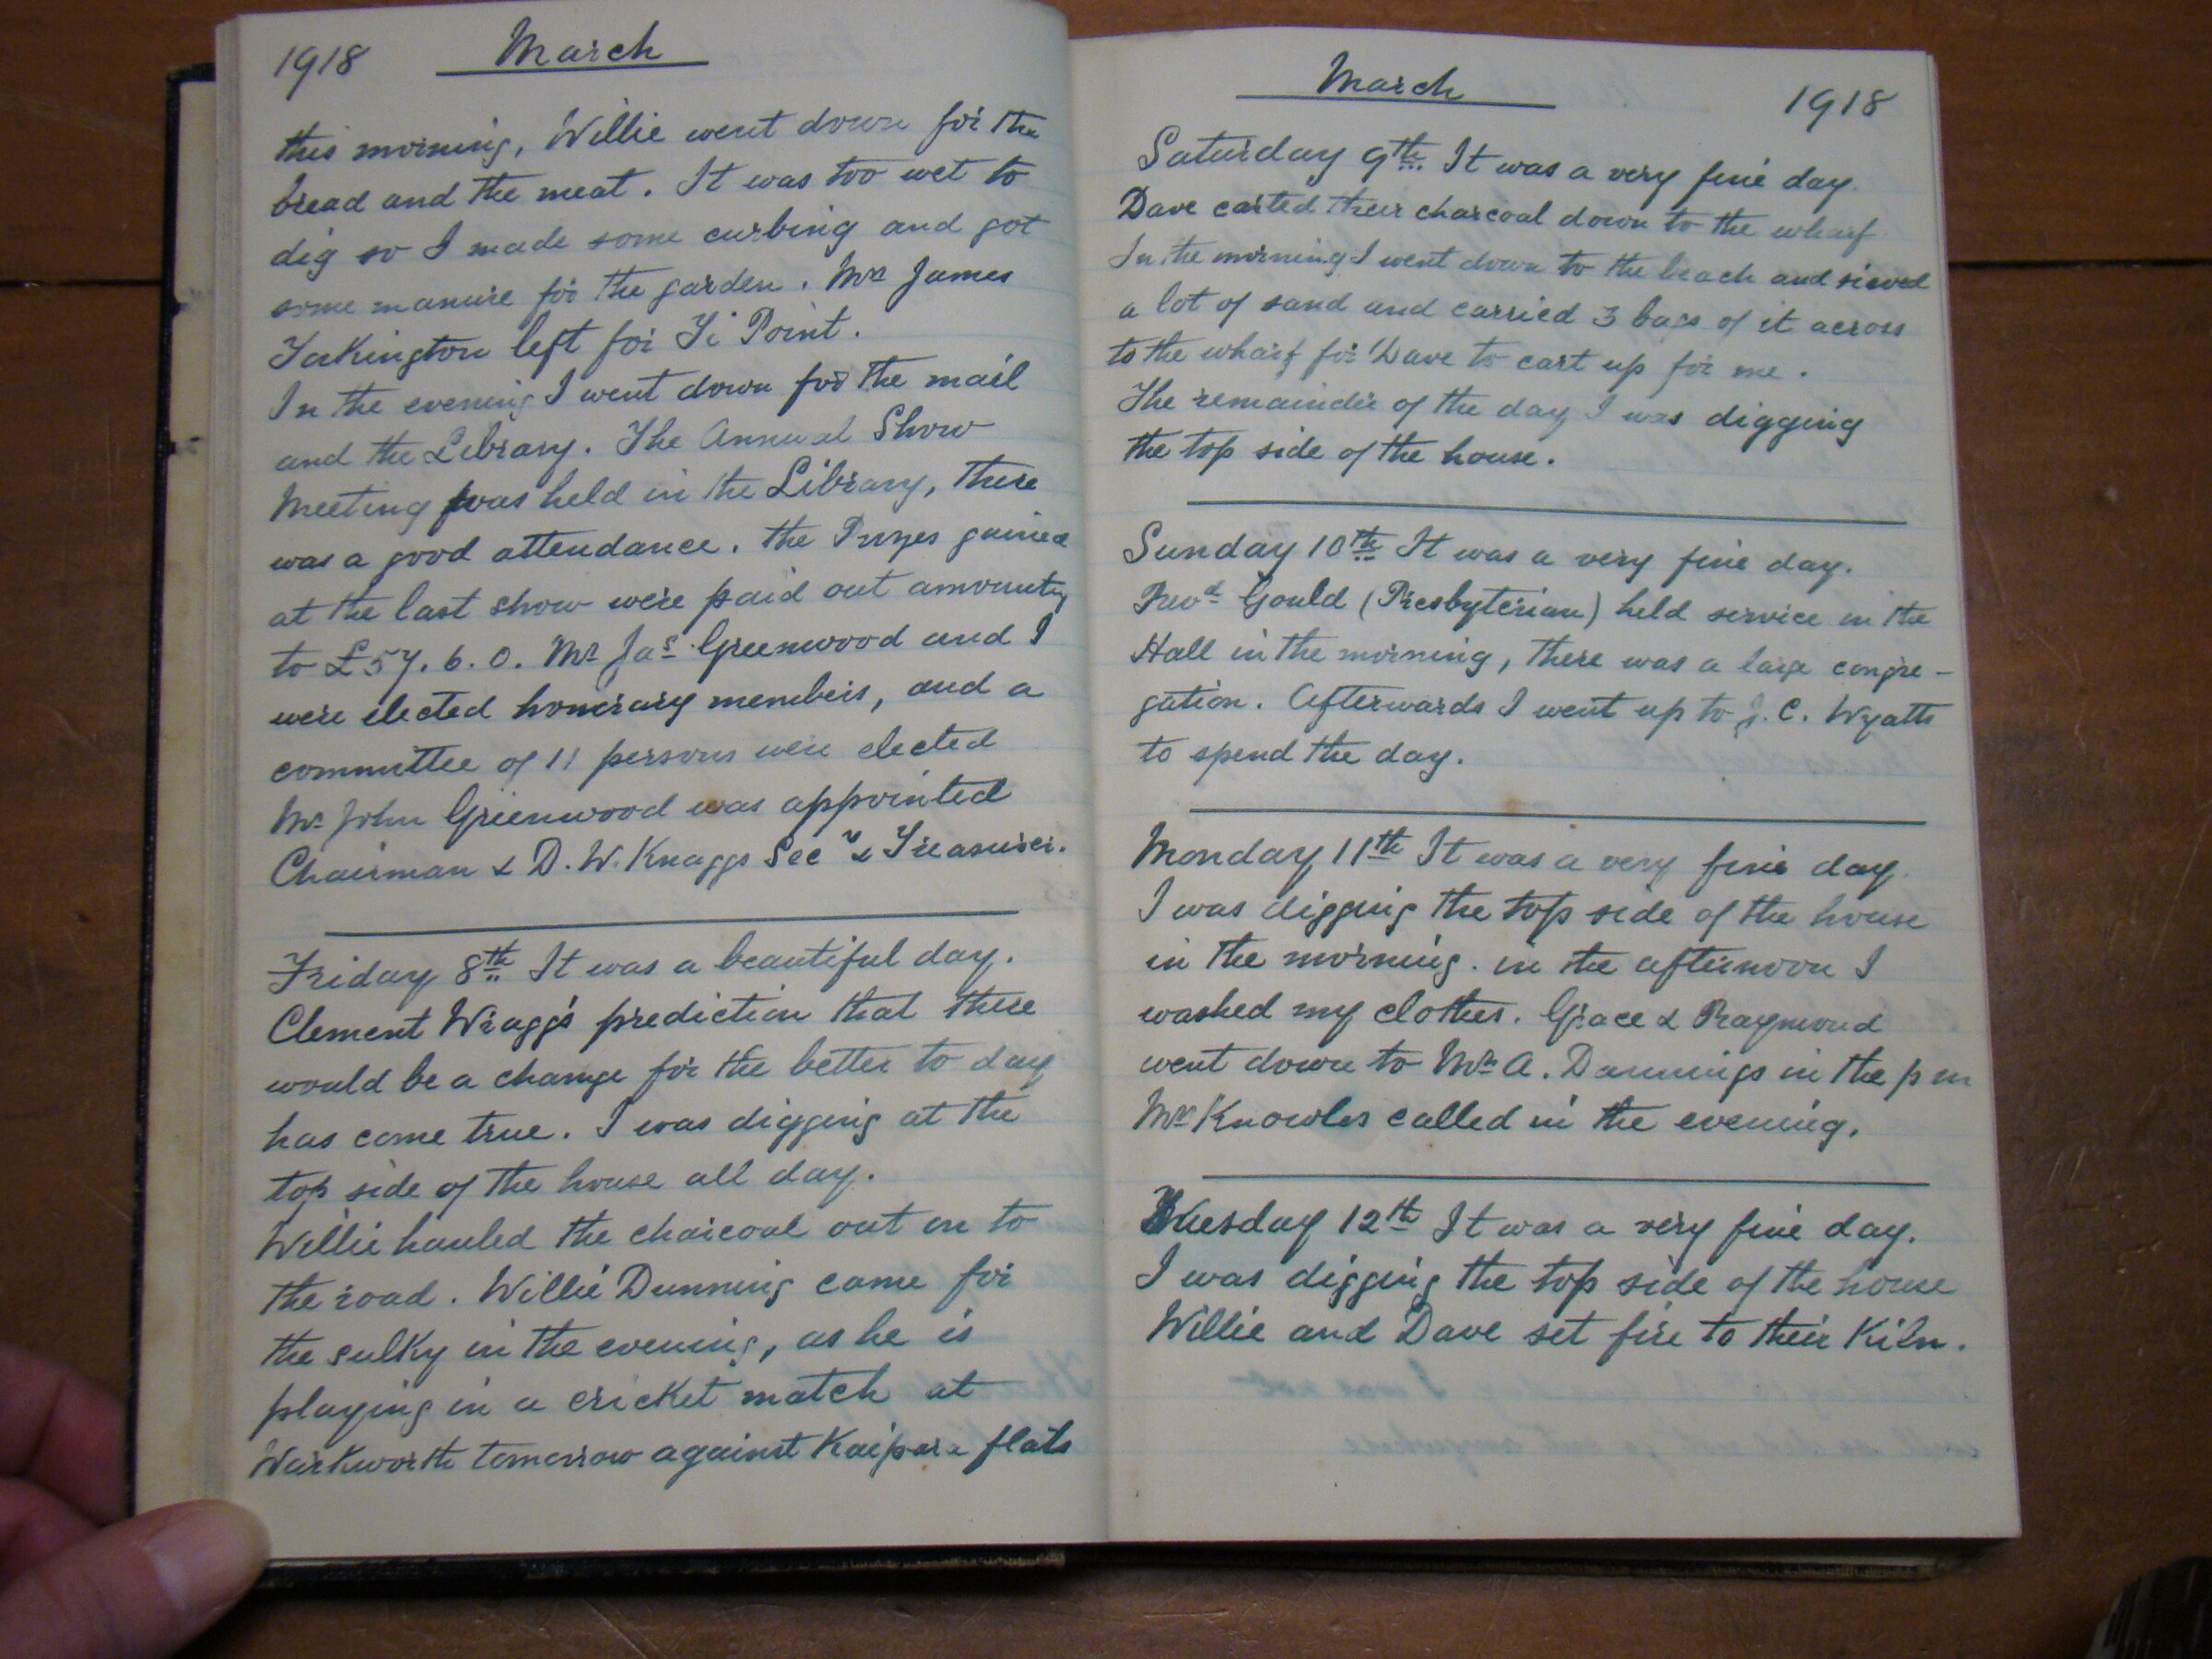 1918 March
this morning, Willie went down for the
bread and the meat. It was too wet to
dig so I made some curbing and got
some manure for the garden. Mr James
Torkington left for Ti Point.
In the evening I went down for the mail
and the Library. The Annual Show
Meeting was held in the Library, there
was a good attendance. the Prizes gained
at the last show were paid out amounting
to £57. 6. 0. Mr Jas Greenwood and I
were elected honorary members, and a
committee of 11 persons were elected
Mr John Greenwood was appointed
Chairman & D. W. Knaggs Secy & Treasurer.
Friday 8th It was a beautiful day.
Clement Wragg's prediction that there
would be a change for the better to day
has come true. I was digging at the
top side of the house all day.
Willie hauled the charcoal out on to
the road. Willie Dunning came for
the sulky in the evening, as he is
playing in a cricket match at
Warkworth tomorrow against Kaipara flats
March 1918
Saturday 9th It was a very fine day.
Dave carted their charcoal down to the wharf
In the morning I went down to the beach and sieved
a lot of sand and carried 3 bags of it across
to the wharf for Dave to cart up for me.
The remainder of the day I was digging
the top side of the house.
Sunday 10th It was a very fine day.
Revd Gould (Presbyterian) held service in the
Hall in the morning, there was a large congre-
gation. Afterwards I went up to J. C. Wyatts
to spend the day.
Monday 11th It was a very fine day.
I was digging the top side of the house
in the morning. in the afternoon I
washed my clothes. Grace & Raymond
went down to Mrs A. Dunnings in the p m
Mr Knowles called in the evening.
Tuesday 12th It was a very fine day.
I was digging the top side of the house
Willie and Dave set fire to their Kiln.